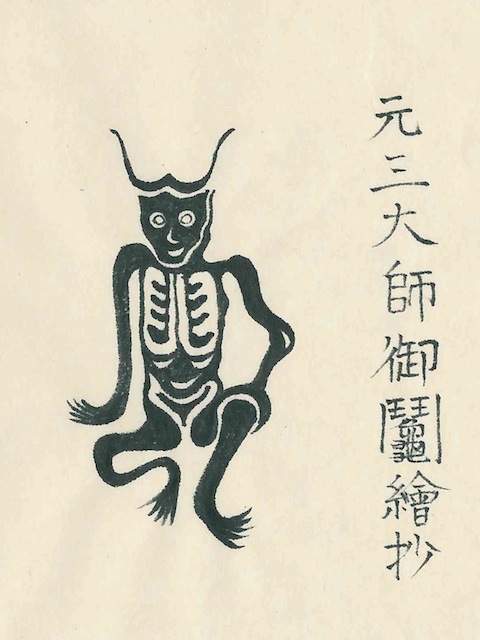 元三大師御鬮繪抄